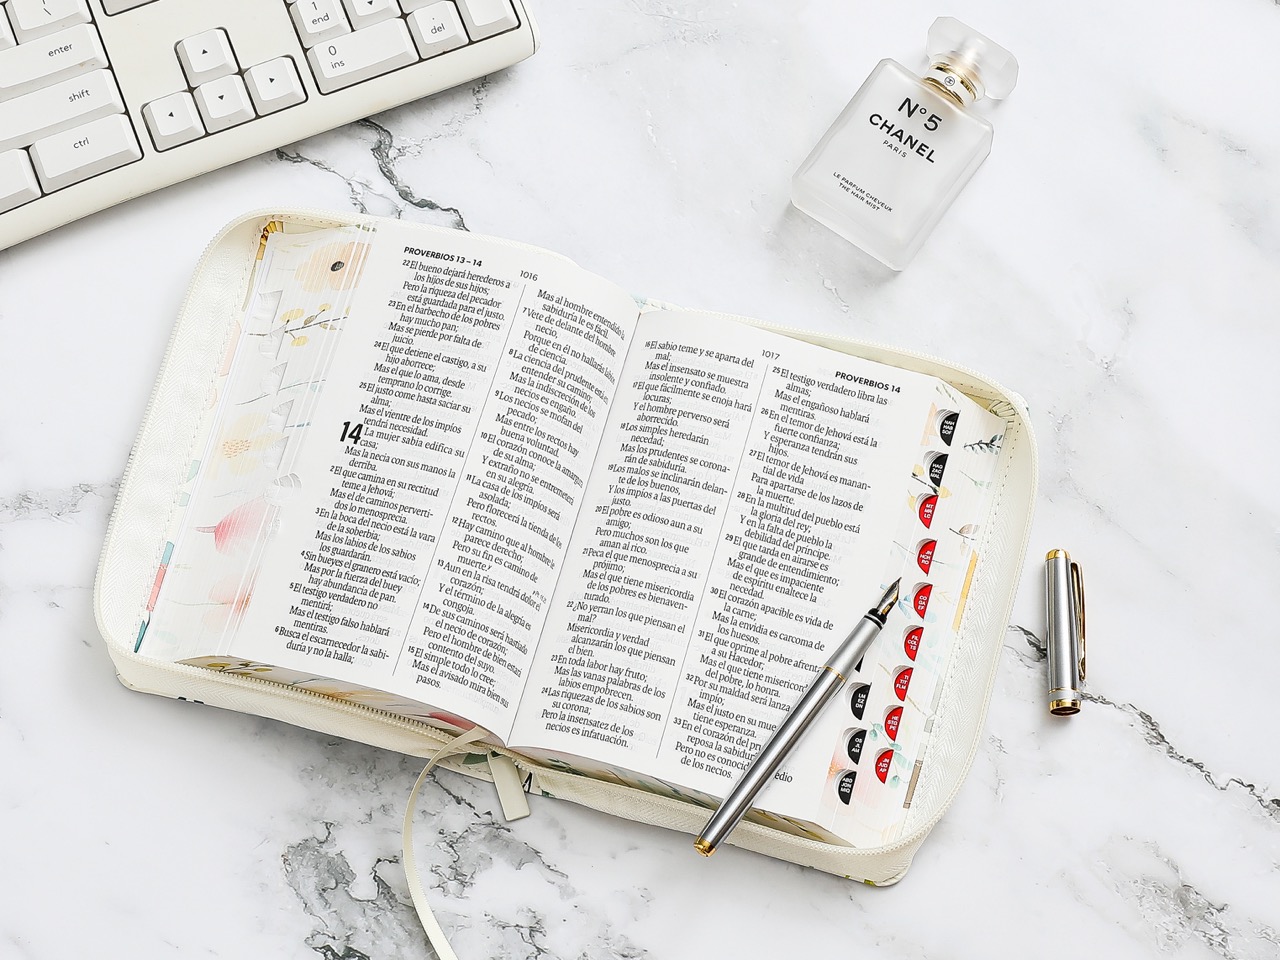 enter
shift
ctrl
1
end
0
ins
.
del
N°5
CHANEL
PARIS
LE PARFUM CHEVEUX
THE HAIR MIST
PROVERBIOS 13 – 14
1016
22 El bueno dejará herederos a
los hijos de sus hijos;
Pero la riqueza del pecador
está guardada para el justo.
23 En el barbecho de los pobres
hay mucho pan;
Mas se pierde por falta de
juicio.
24 El que detiene el castigo, a su
hijo aborrece;
Mas el que lo ama, desde
temprano lo corrige.
25 El justo come hasta saciar su
alma;
Mas el vientre de los impíos
tendrá necesidad.
14 La mujer sabia edifica su
casa;
Mas la necia con sus manos la
derriba.
2 El que camina en su rectitud
teme a Jehová;
Mas el de caminos perverti-
dos lo menosprecia.
3 En la boca del necio está la vara
de la soberbia;
Mas los labios de los sabios
los guardarán.
4 Sin bueyes el granero está vacío;
Mas por la fuerza del buey
hay abundancia de pan.
5 El testigo verdadero no
mentirá;
Mas el testigo falso hablará
mentiras.
6 Busca el escarnecedor la sabi-
duría y no la halla;
Mas al hombre entendido la
sabiduría le es fácil.
7 Vete de delante del hombre
necio,
Porque en él no hallarás labios
de ciencia.
8 La ciencia del prudente está en
entender su camino;
Mas la indiscreción de los
necios es engaño.
9 Los necios se mofan del
pecado;
Mas entre los rectos hay
buena voluntad.
10 El corazón conoce la amargura
de su alma;
Y extraño no se entremeterá
en su alegría.
11 La casa de los impíos será
asolada;
Pero florecerá la tienda de los
rectos.
12 Hay camino que al hombre le
parece derecho;
Pero su fin es camino de
muerte.
13 Aun en la risa tendrá dolor el
corazón;
Y el término de la alegría es
congoja.
14 De sus caminos será hastiado
el necio de corazón;
Pero el hombre de bien estará
contento del suyo.
15 El simple todo lo cree;
Mas el avisado mira bien sus
pasos.
1017
PROVERBIOS 14
16 El sabio teme y se aparta del
mal;
Mas el insensato se muestra
insolente y confiado.
17 El que fácilmente se enoja hará
locuras;
Y el hombre perverso será
aborrecido.
18 Los simples heredarán
necedad;
Mas los prudentes se corona-
rán de sabiduría.
19 Los malos se inclinarán delan-
te de los buenos,
Y los impíos a las puertas del
justo.
20 El pobre es odioso aun a su
amigo;
Pero muchos son los que
aman al rico.
21 Peca el que menosprecia a su
prójimo;
Mas el que tiene misericordia
de los pobres es bienaven-
turado.
22 ¿No yerran los que piensan el
mal?
Misericordia y verdad
alcanzarán los que piensan
el bien.
23 En toda labor hay fruto;
Mas las vanas palabras de los
labios empobrecen.
24 Las riquezas de los sabios son
su corona;
Pero la insensatez de los
necios es infatuación.
25 El testigo verdadero libra las
almas;
Mas el engañoso hablará
mentiras.
26 En el temor de Jehová está la
fuerte confianza;
Y esperanza tendrán sus
hijos.
27 El temor de Jehová es manan-
tial de vida
Para apartarse de los lazos de
la muerte.
28 En la multitud del pueblo está
la gloria del rey;
Y en la falta de pueblo la
debilidad del príncipe.
29 El que tarda en airarse es
grande de entendimiento;
Mas el que es impaciente
de espíritu enaltece la
necedad.
30 El corazón apacible es vida de
la carne;
Mas la envidia es carcoma de
los huesos.
31 El que oprime al pobre afrenta
a su Hacedor;
Mas el que tiene misericordia
del pobre, lo honra.
32 Por su maldad será lanza
impío;
Mas el justo en su mue
tiene esperanza.
33 En el corazón del pru
reposa la sabiduría
Pero no es conocid edio
de los necios.
NAH
HAB
SOF
HAG
ZAC
MAL
MT
MR
LC
JN
HCH
RO
CO
GA
EF
FIL
COL
TS
TI
TIT
FLM
HE
STG
PE
JN
JUD
AP
LM
EZ
DN
OS
JL
AM
ABD
JON
MIQ